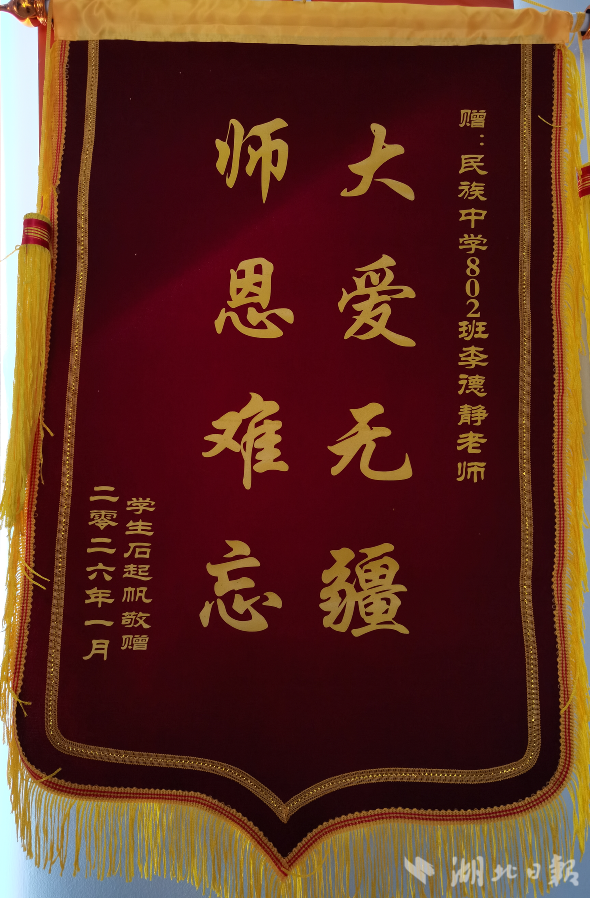 赠：民族中学802班李德静老师
大爱无疆
师恩难忘
学生石起帆敬赠
二零二六年一月
湖北日报